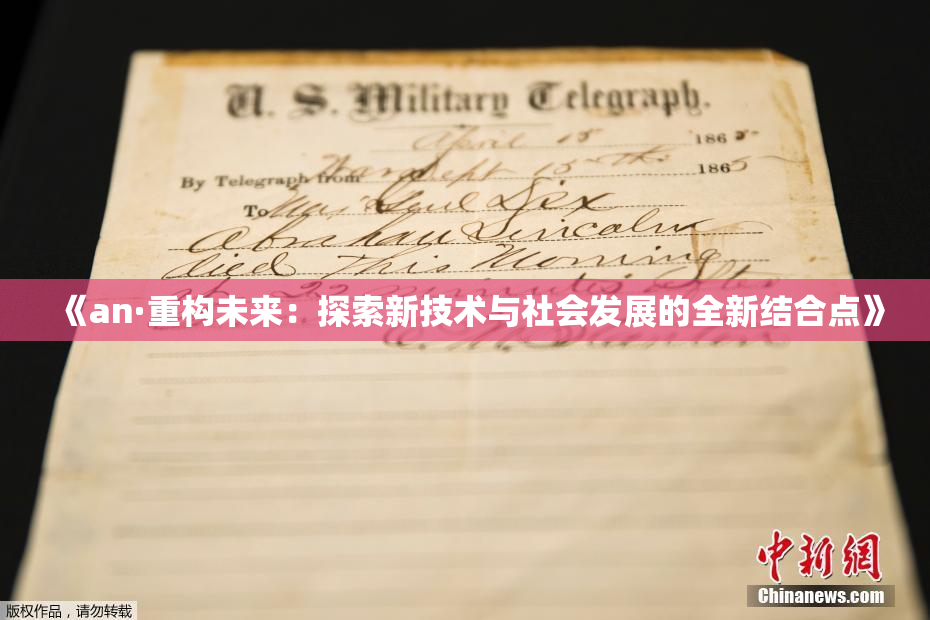 U. S. Military Telegraph.
April 15 1865
By Telegraph from War Dept 15th 1865
To Maj Genl Dix
Abraham Lincoln
died This Morning
at 22 minutes after
《an·重构未来：探索新技术与社会发展的全新结合点》
E. M. Stanton
中新网
Chinanews.com
版权作品，请勿转载